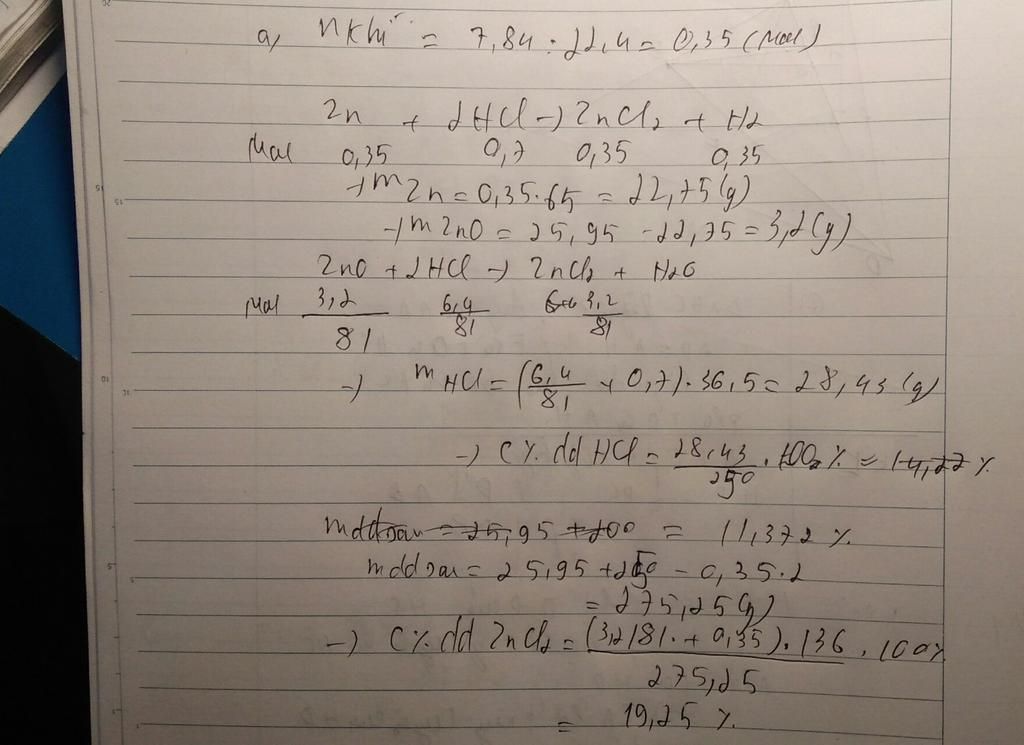 a, nkhí = 7,84 : 22,4 = 0,35 (mol)
Zn + 2HCl → ZnCl2 + H2
mol 0,35 0,7 0,35 0,35
→ mZn = 0,35.65 = 22,75(g)
→ mZnO = 25,95 - 22,75 = 3,2(g)
ZnO + 2HCl → ZnCl2 + H2O
mol 3,2/81 6,4/81 3,2/81
→ mHCl = (6,4/81 + 0,7).36,5 = 28,43 (g)
→ C% dd HCl = 28,43/250 . 100% = 14,22 %
mddsau = 25,95 + 200 = 11,372 %
mddsau = 25,95 + 250 - 0,35.2
= 275,25(g)
→ C% dd ZnCl2 = (3,2/81. + 0,35).136/275,25 . 100%
= 19,25 %